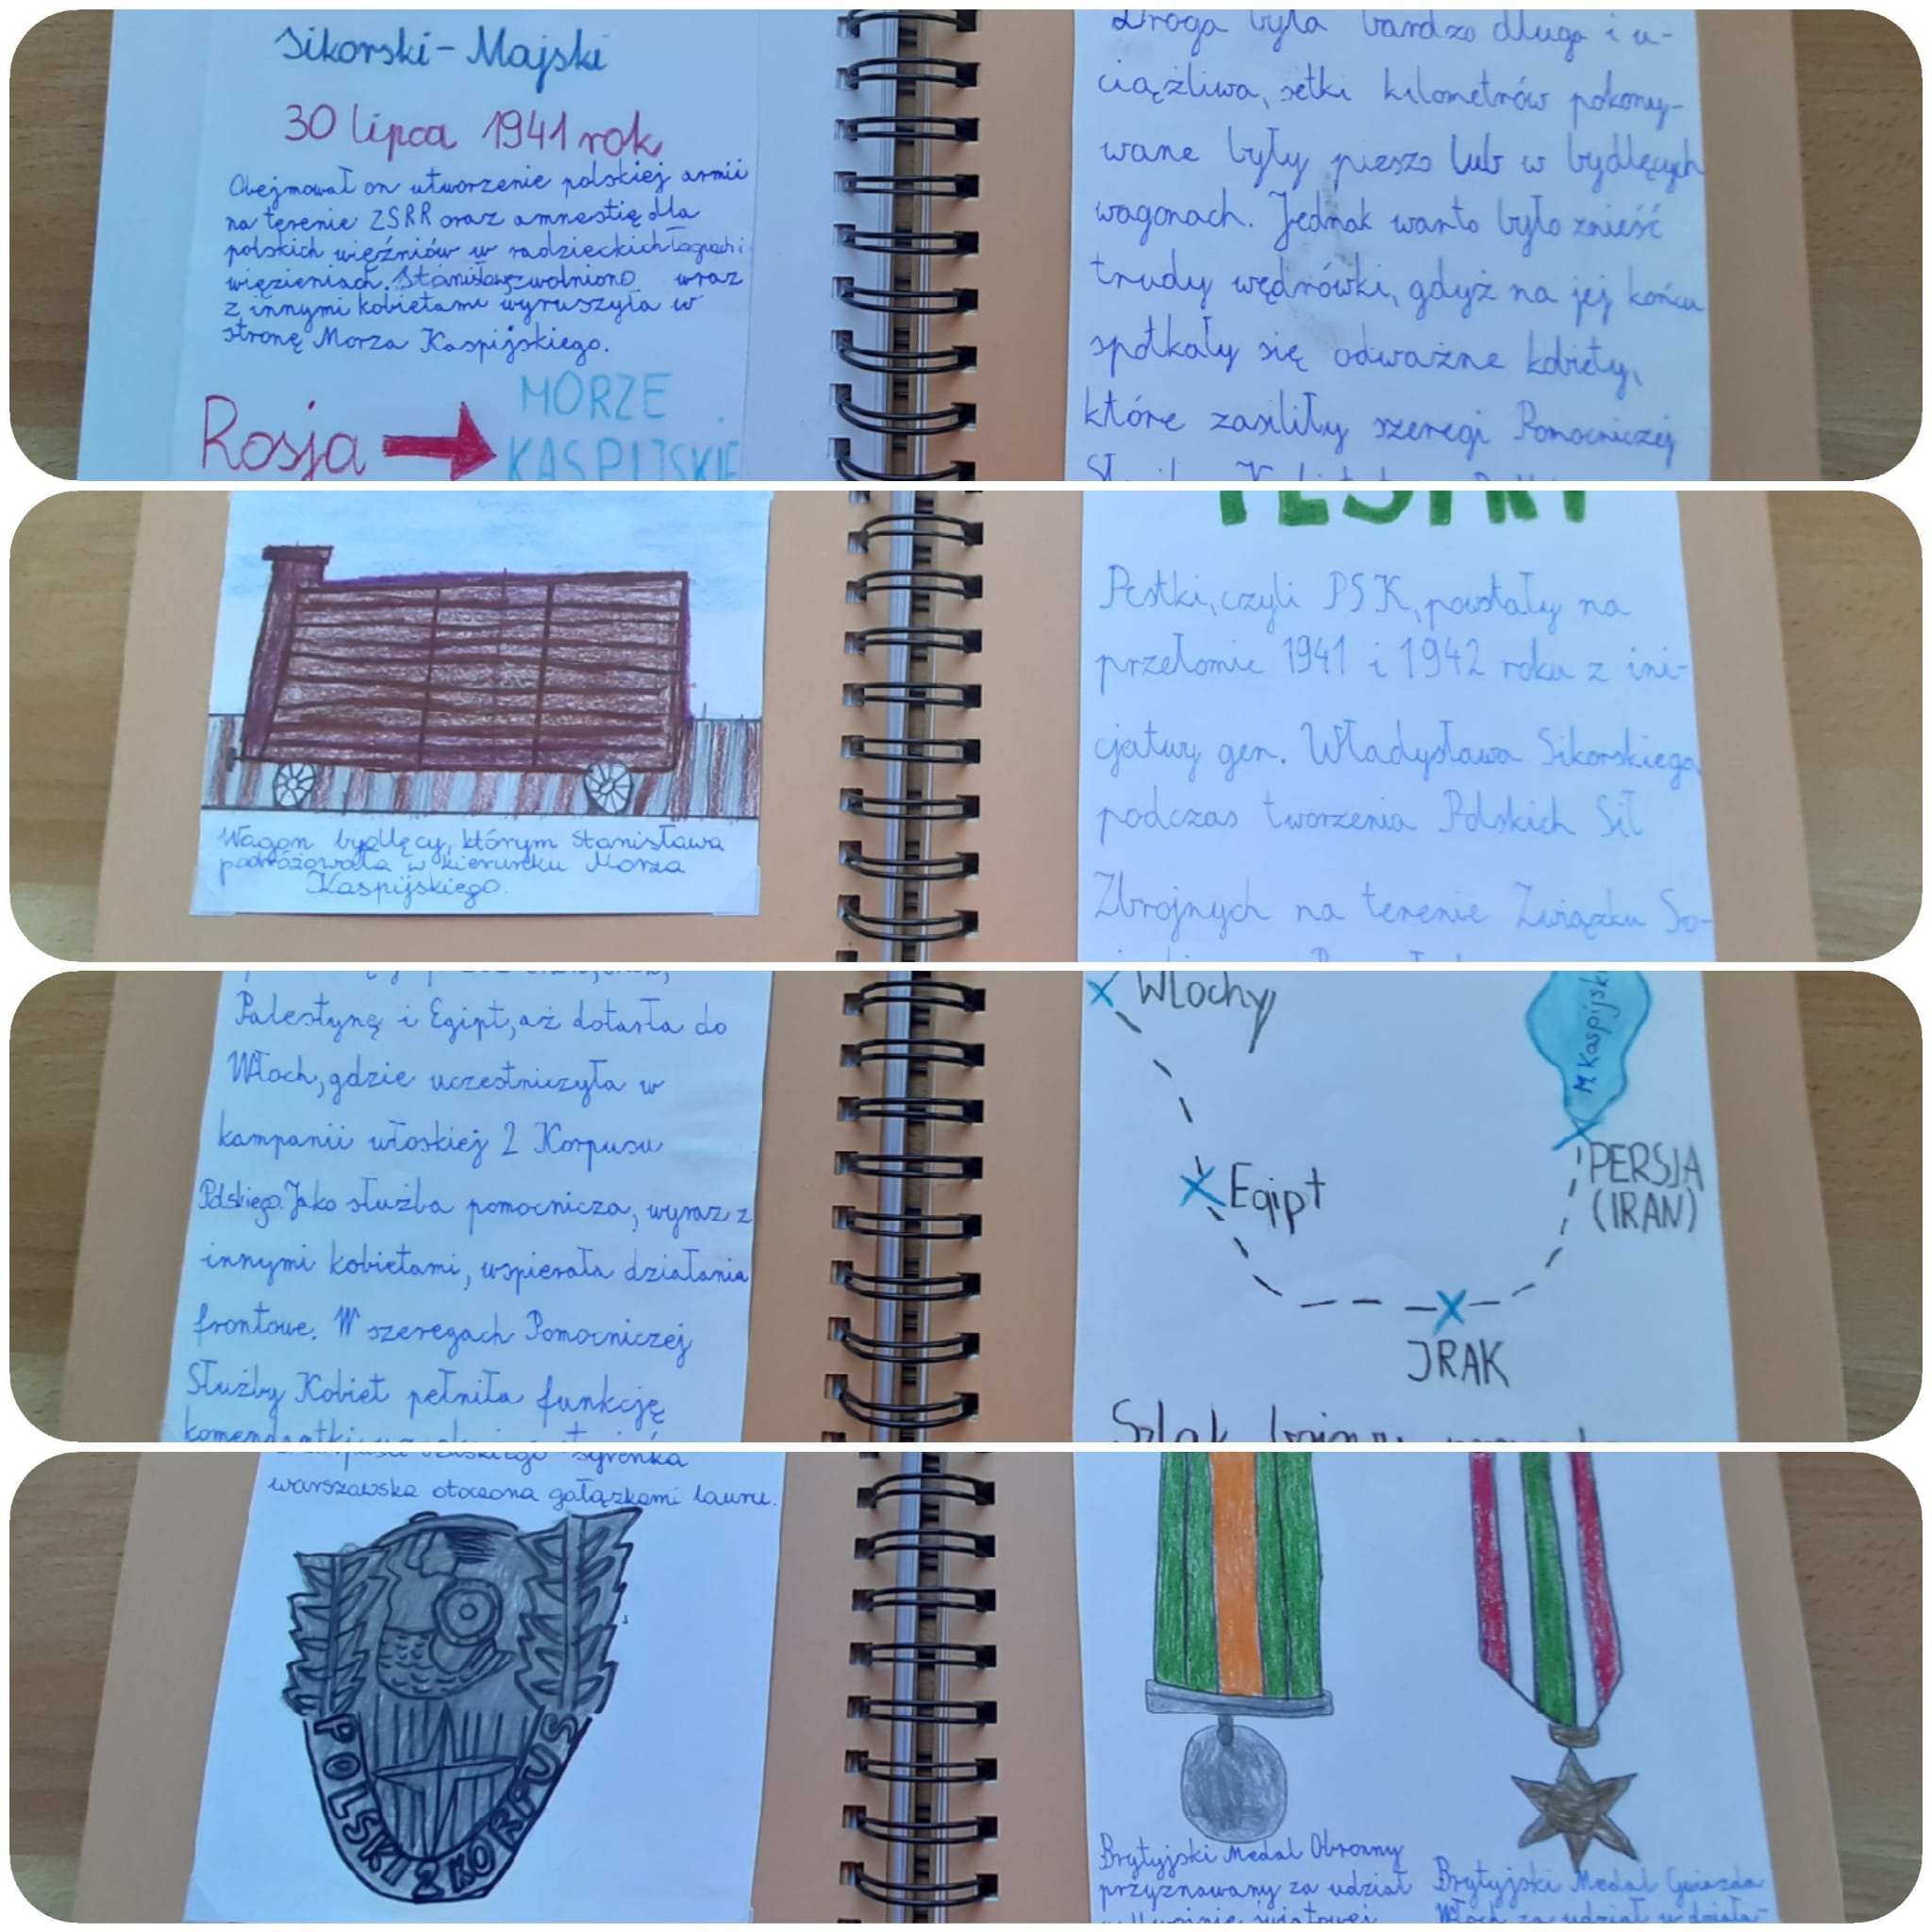 Sikorski - Majski
30 lipca 1941 rok
Obejmował on utworzenie polskiej armii
na terenie ZSRR oraz amnestię dla
polskich więźniów w radzieckich łagrach i
więzieniach. Stanisławę zwolniono wraz
z innymi kobietami wyruszyła w
stronę Morza Kaspijskiego.
Rosja → MORZE
KASPIJSKIE
Droga była bardzo długa i u-
ciążliwa, setki kilometrów pokony-
wane były pieszo lub w bydlęcych
wagonach. Jednak warto było znieść
trudy wędrówki, gdyż na jej końcu
spotkały się odważne kobiety,
które zasiliły szeregi Pomocniczej
Wagon bydlęcy, którym Stanisława
podróżowała w kierunku Morza
Kaspijskiego.
PESTKI
Pestki, czyli PSK, powstały na
przełomie 1941 i 1942 roku z ini-
cjatwy gen. Władysława Sikorskiego,
podczas tworzenia Polskich Sił
Zbrojnych na terenie Związku So-
Palestynę i Egipt, aż dotarła do
Włoch, gdzie uczestniczyła w
kampanii włoskiej 2 Korpusu
Polskiego. Jako służba pomocnicza, wyraz z
innymi kobietami, wspierała działania
frontowe. W szeregach Pomocniczej
Służby Kobiet pełniła funkcję
Włochy
M Kaspijski
PERSJA
(IRAN)
Egipt
JRAK
Szlak
syrenka
warszawska otoczona gałązkami lauru.
POLSKI 2 KORPUS
Brytyjski Medal Obronny
przyznawany za udział
Brytyjski Medal Gwiazda
Włoch za udział w działa-